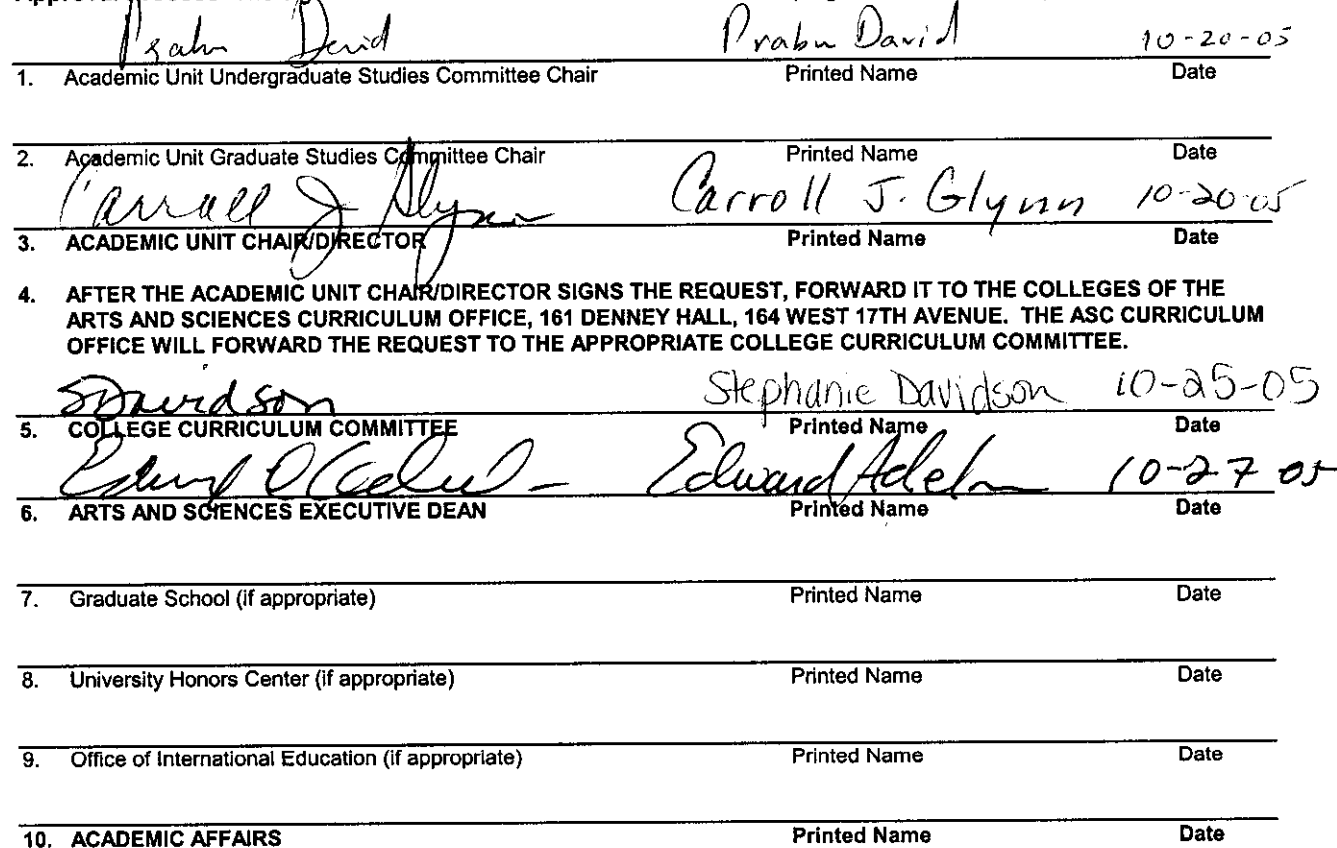 Prabu David Prabu David 10-20-05
1. Academic Unit Undergraduate Studies Committee Chair Printed Name Date
2. Academic Unit Graduate Studies Committee Chair Printed Name Date
Carroll J Glynn Carroll J. Glynn 10-20-05
3. ACADEMIC UNIT CHAIR/DIRECTOR Printed Name Date
4. AFTER THE ACADEMIC UNIT CHAIR/DIRECTOR SIGNS THE REQUEST, FORWARD IT TO THE COLLEGES OF THE
ARTS AND SCIENCES CURRICULUM OFFICE, 161 DENNEY HALL, 164 WEST 17TH AVENUE. THE ASC CURRICULUM
OFFICE WILL FORWARD THE REQUEST TO THE APPROPRIATE COLLEGE CURRICULUM COMMITTEE.
SDavidson Stephanie Davidson 10-25-05
5. COLLEGE CURRICULUM COMMITTEE Printed Name Date
Edward Adel 10-27 05
6. ARTS AND SCIENCES EXECUTIVE DEAN Printed Name Date
7. Graduate School (if appropriate) Printed Name Date
8. University Honors Center (if appropriate) Printed Name Date
9. Office of International Education (if appropriate) Printed Name Date
10. ACADEMIC AFFAIRS Printed Name Date